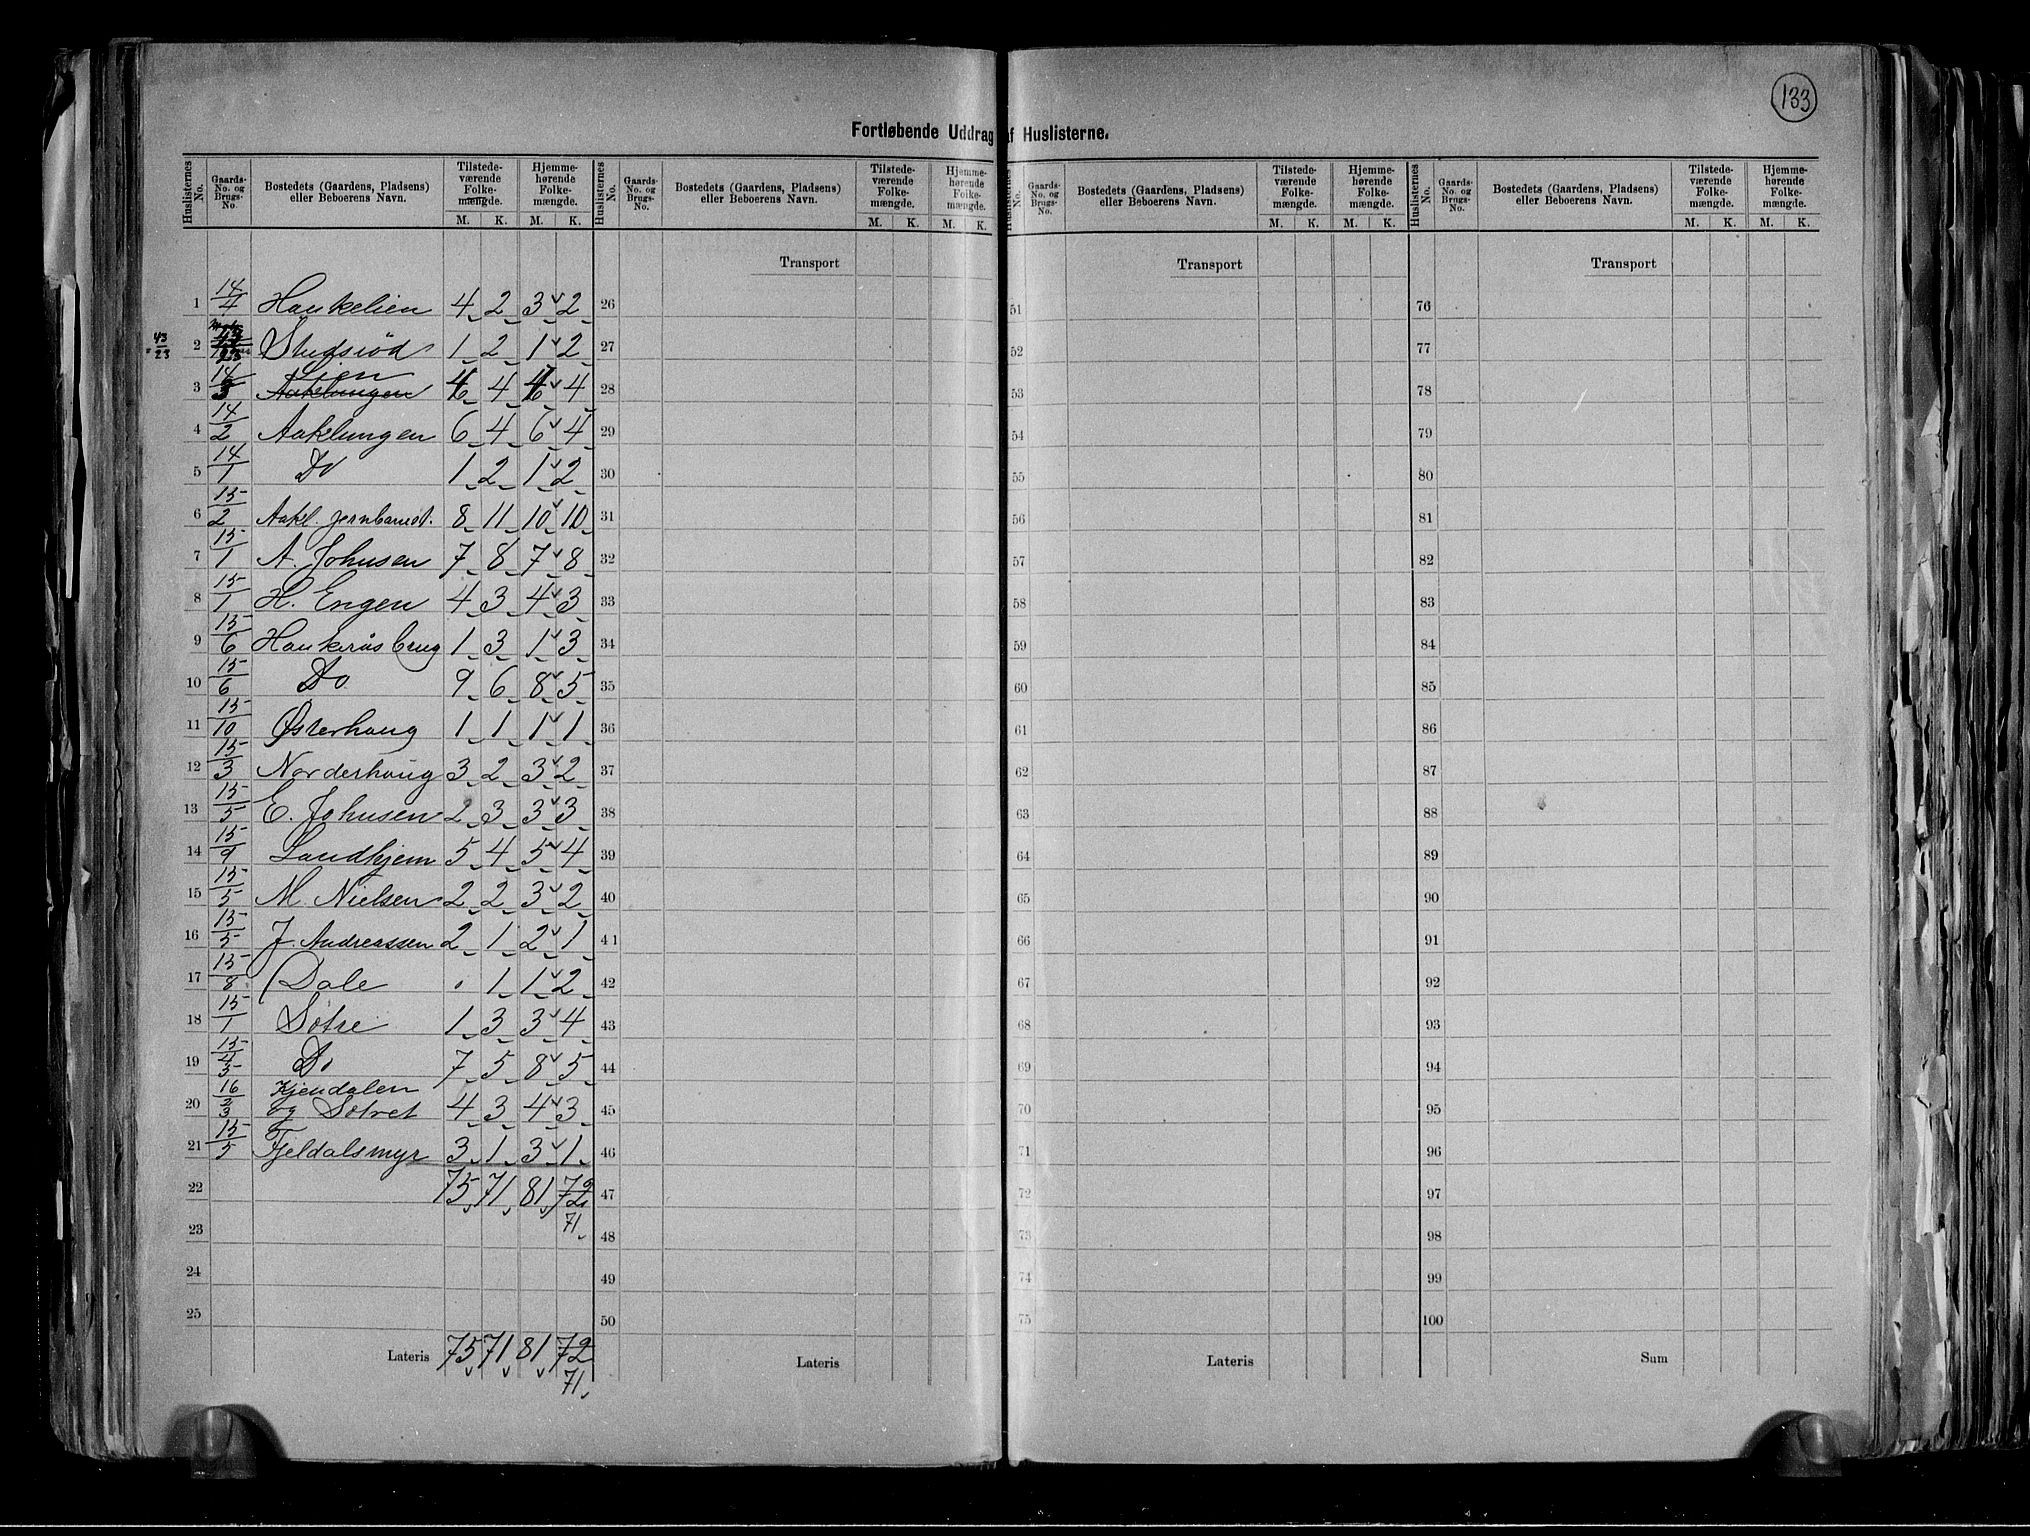 133
Fortløbende Uddrag af Huslisterne.
Huslisternes No. | Gaards-No. og Brugs-No. | Bostedets (Gaardens, Pladsens) eller Beboerens Navn. | Tilstedeværende Folkemængde. M. K. | Hjemmehørende Folkemængde. M. K.
Huslisternes No. | Gaards-No. og Brugs-No. | Bostedets (Gaardens, Pladsens) eller Beboerens Navn. | Tilstedeværende Folkemængde. M. K. | Hjemmehørende Folkemængde. M. K.
Huslisternes No. | Gaards-No. og Brugs-No. | Bostedets (Gaardens, Pladsens) eller Beboerens Navn. | Tilstedeværende Folkemængde. M. K. | Hjemmehørende Folkemængde. M. K.
Huslisternes No. | Gaards-No. og Brugs-No. | Bostedets (Gaardens, Pladsens) eller Beboerens Navn. | Tilstedeværende Folkemængde. M. K. | Hjemmehørende Folkemængde. M. K.
Transport Transport Transport
1 14/4 Haukelien 4 2 3 2 26 51 76
43/23 2 Studsrød 1 2 1 2 27 52 77
3 14/3 Lien Aaklungen 4 4 4 28 53 78
4 14/2 Aaklungen 6 4 6 4 29 54 79
5 14/1 Do 1 2 1 2 30 55 80
6 15/2 Aakl. jernbanest. 8 11 10 10 31 56 81
7 15/1 A. Johnsen 7 8 7 8 32 57 82
8 15/1 H. Engen 4 3 4 3 33 58 83
9 15/6 Haukeråsbrug 1 3 1 3 34 59 84
10 15/6 Do 9 6 8 5 35 60 85
11 15/10 Østerhaug 1 1 1 1 36 61 86
12 15/3 Norderhaug 3 2 3 2 37 62 87
13 15/5 E. Johnsen 2 3 3 3 38 63 88
14 15/9 Landhjem 5 4 5 4 39 64 89
15 15/5 M. Nielsen 2 2 3 2 40 65 90
16 15/5 J. Andreassen 2 1 2 1 41 66 91
17 15/8 Dale 1 1 2 42 67 92
18 15/1 Søtre 1 3 3 4 43 68 93
19 15/4 5 Do 7 5 8 5 44 69 94
20 16/2 3 Kjendalen og Søtret 4 3 4 3 45 70 95
21 15/5 Fjeldalsmyr 3 1 3 1 46 71 96
22 75 71 81 72 47 72 97
23 71 48 73 98
24 49 74 99
25 50 75 100
Lateris 75 71 81 72 Lateris Lateris Sum
71